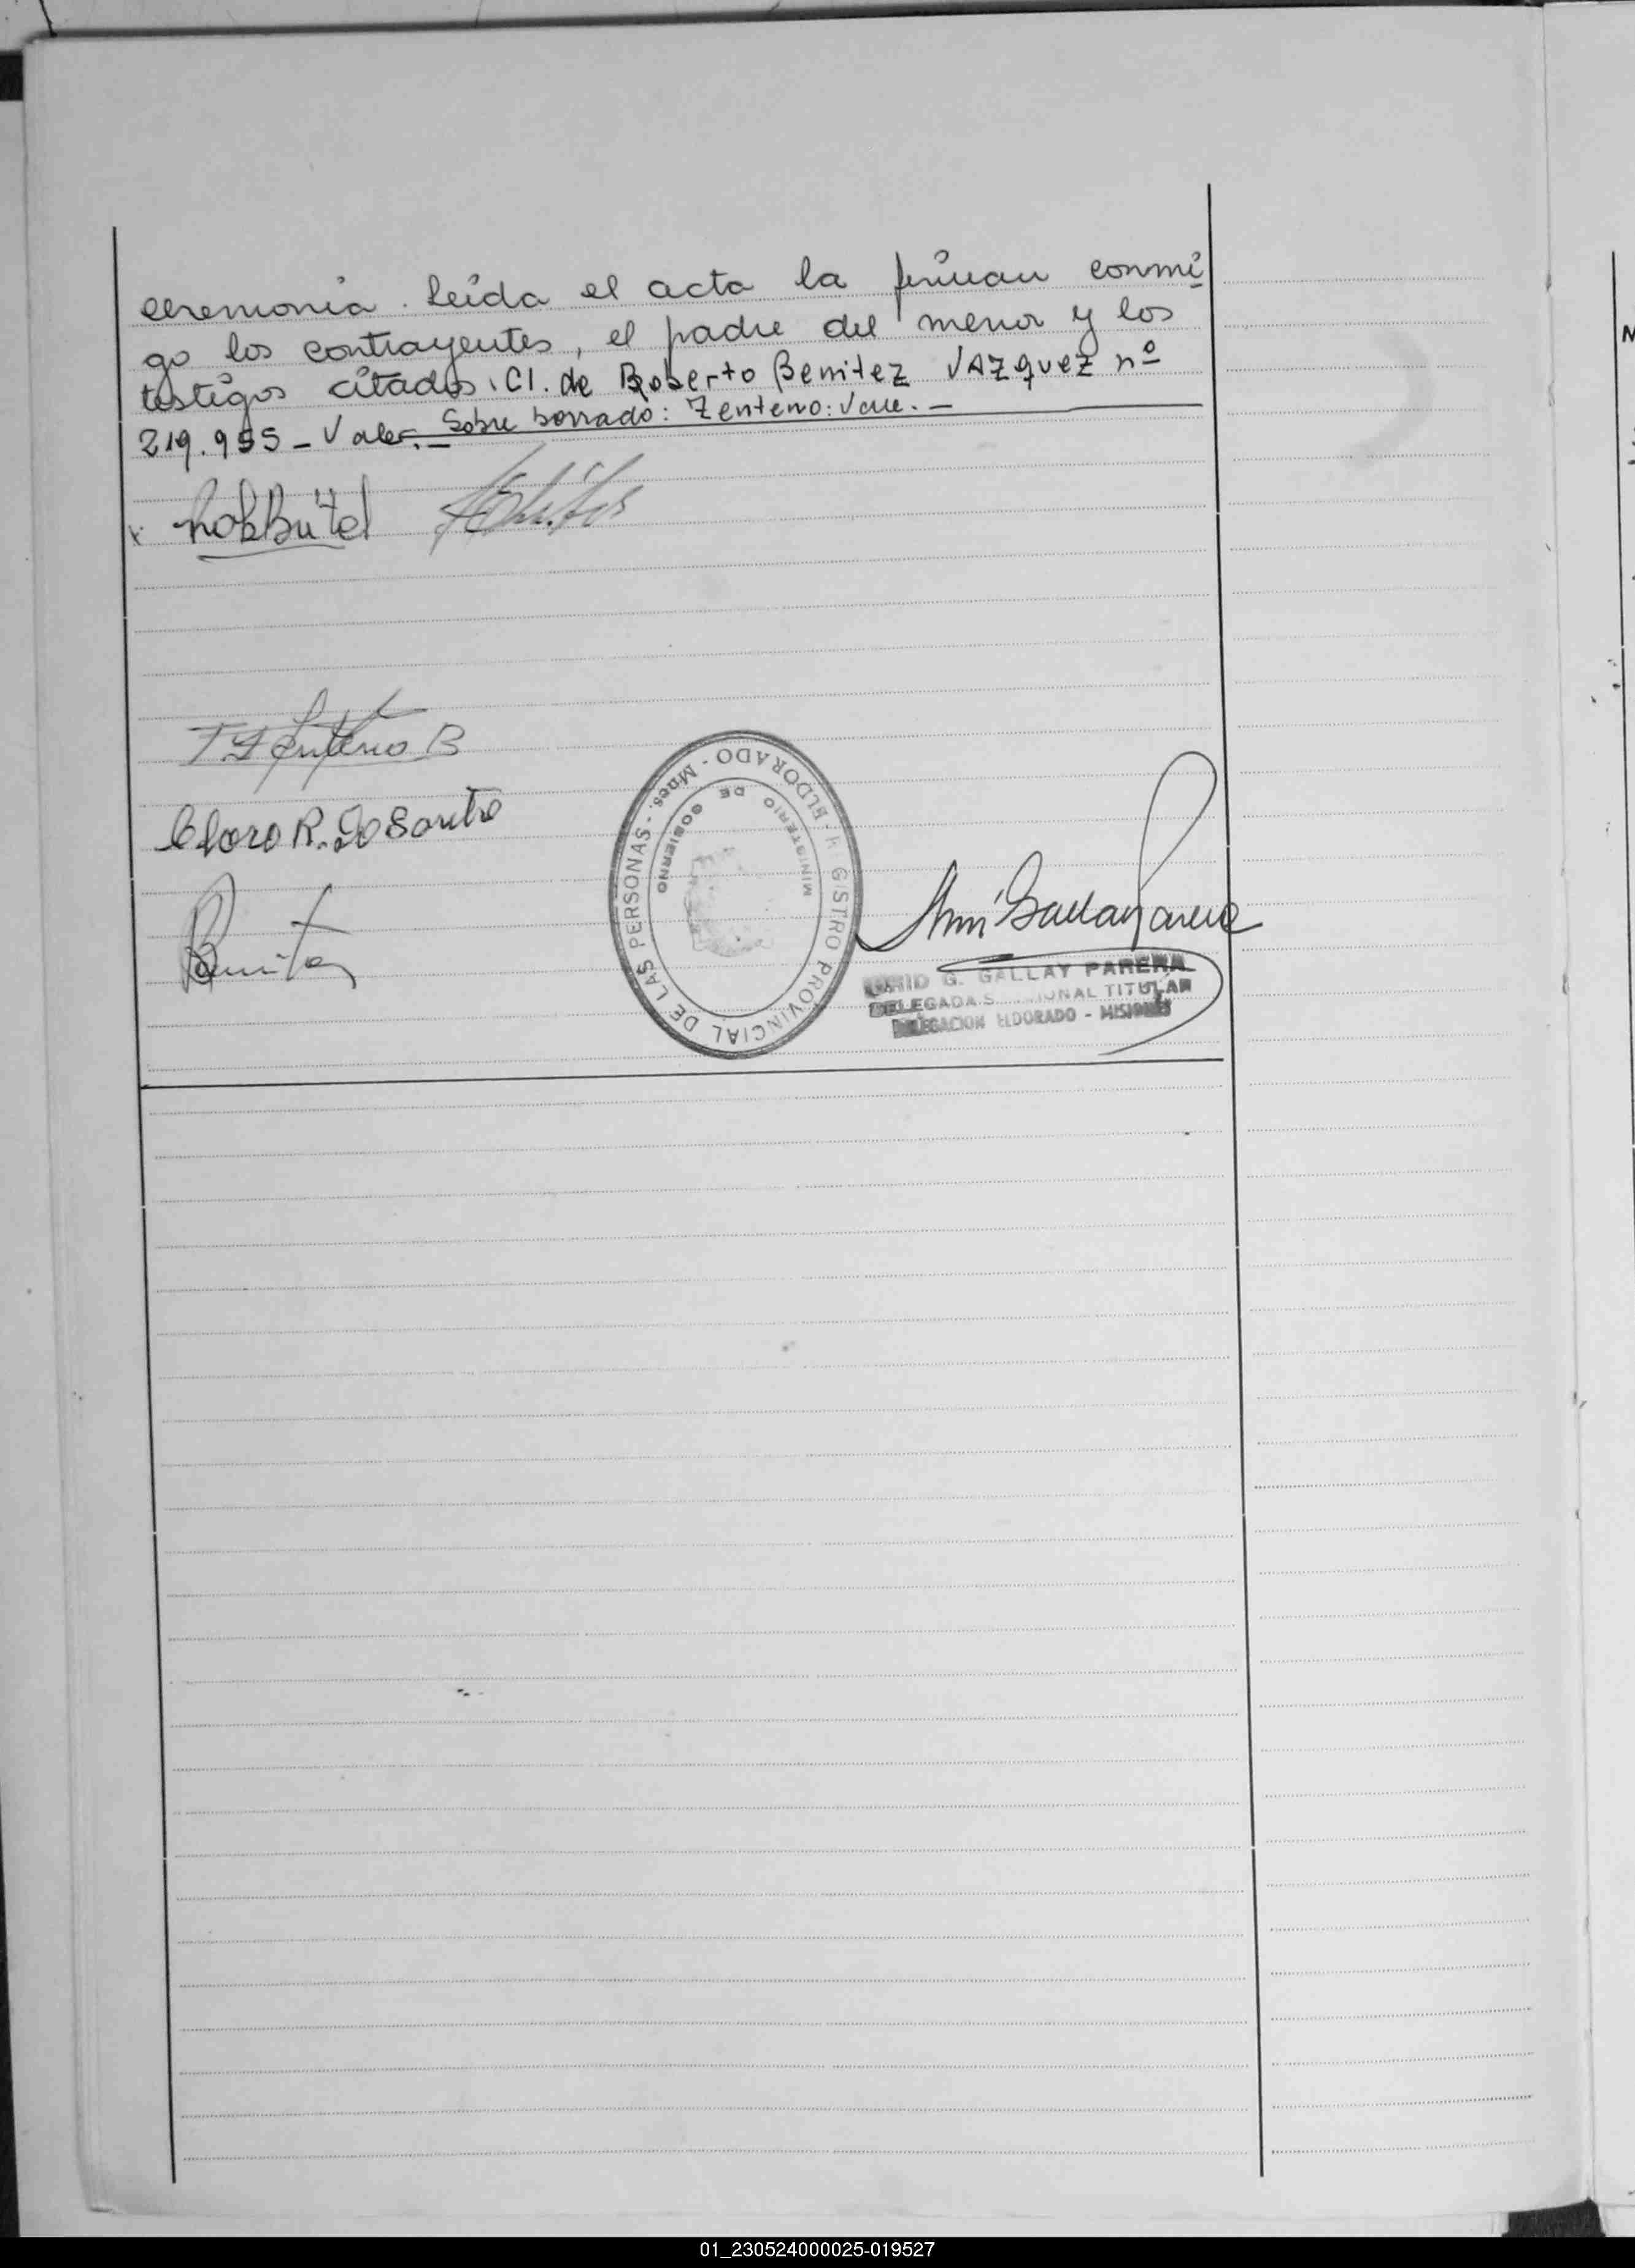 ceremonia. Leída el acta la firman conmi
go los contrayentes, el padre del menor y los
testigos citados. CI. de Roberto Benitez VAZquez nº
219.955 - Vale. - Sobre borrado: Zenteno: Vale. -
Zenteno B
Benitez
REGISTRO PROVINCIAL DE LAS PERSONAS - Mnes. - ELDORADO -
MINISTERIO DE GOBIERNO
G. GALLAY PARERA
DELEGADA TITULAR
DELEGACION ELDORADO - MISIONES
01_230524000025-019527